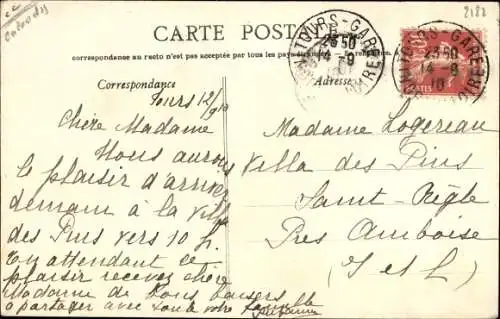 2182
CARTE POSTALE
correspondance au recto n'est pas acceptée par tous les pays
Correspondance
Adresse
TOURS-GARE
23 50
14-9
10
TOURS-GARE
23 50
14-9
10
POSTES
Tours
Chère Madame
Nous aurons
le plaisir d'arriver
demain à la villa
des Pins vers 10 h.
En attendant ce
plaisir recevez chère
Madame de bons baisers
à partager avec toute votre famille
Suzanne
Madame Logereau
Villa des Pins
Saint-Règle
Près Amboise
(I et L)